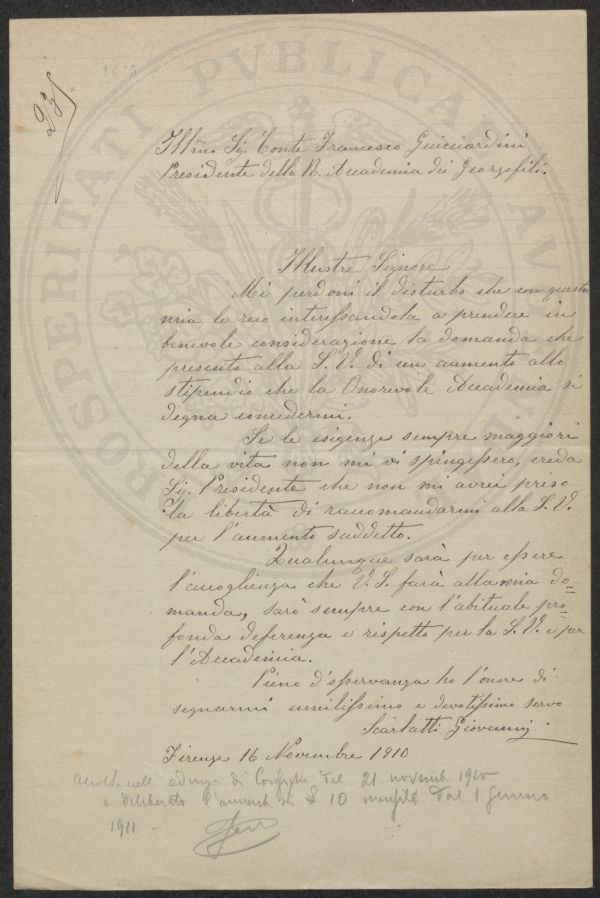 PROSPERITATI PUBLICAE AU
Illmo Sig. Conte Francesco Guicciardini
Presidente della R. Accademia dei Georgofili.
Illustre Signore
Mi perdoni il disturbo che con questa
mia le reco interessandola a prendere in
benevole considerazione la domanda che
presento alla S. V. di un aumento allo
stipendio che la Onorevole Accademia si
degna concedermi.
Se le esigenze sempre maggiori
della vita non mi vi spingessero, creda
Sig. Presidente che non mi avrei preso
la libertà di raccomandarmi alla S. V.
per l'aumento suddetto.
Qualunque sarà per essere
l'accoglienza che V. S. farà alla mia do=
manda, sarò sempre con l'abituale pro=
fonda deferenza e rispetto per la S. V. e per
l'Accademia.
Pieno d'osservanza ho l'onore di
segnarmi umilissimo e devotissimo servo
Scarlatti Giovanni
Firenze 16 Novembre 1910
nell' adunza di Consiglio del 21 novemb 1910
e deliberato l'aumento di £ 10 mensile dal 1 Gennaio
1911 -